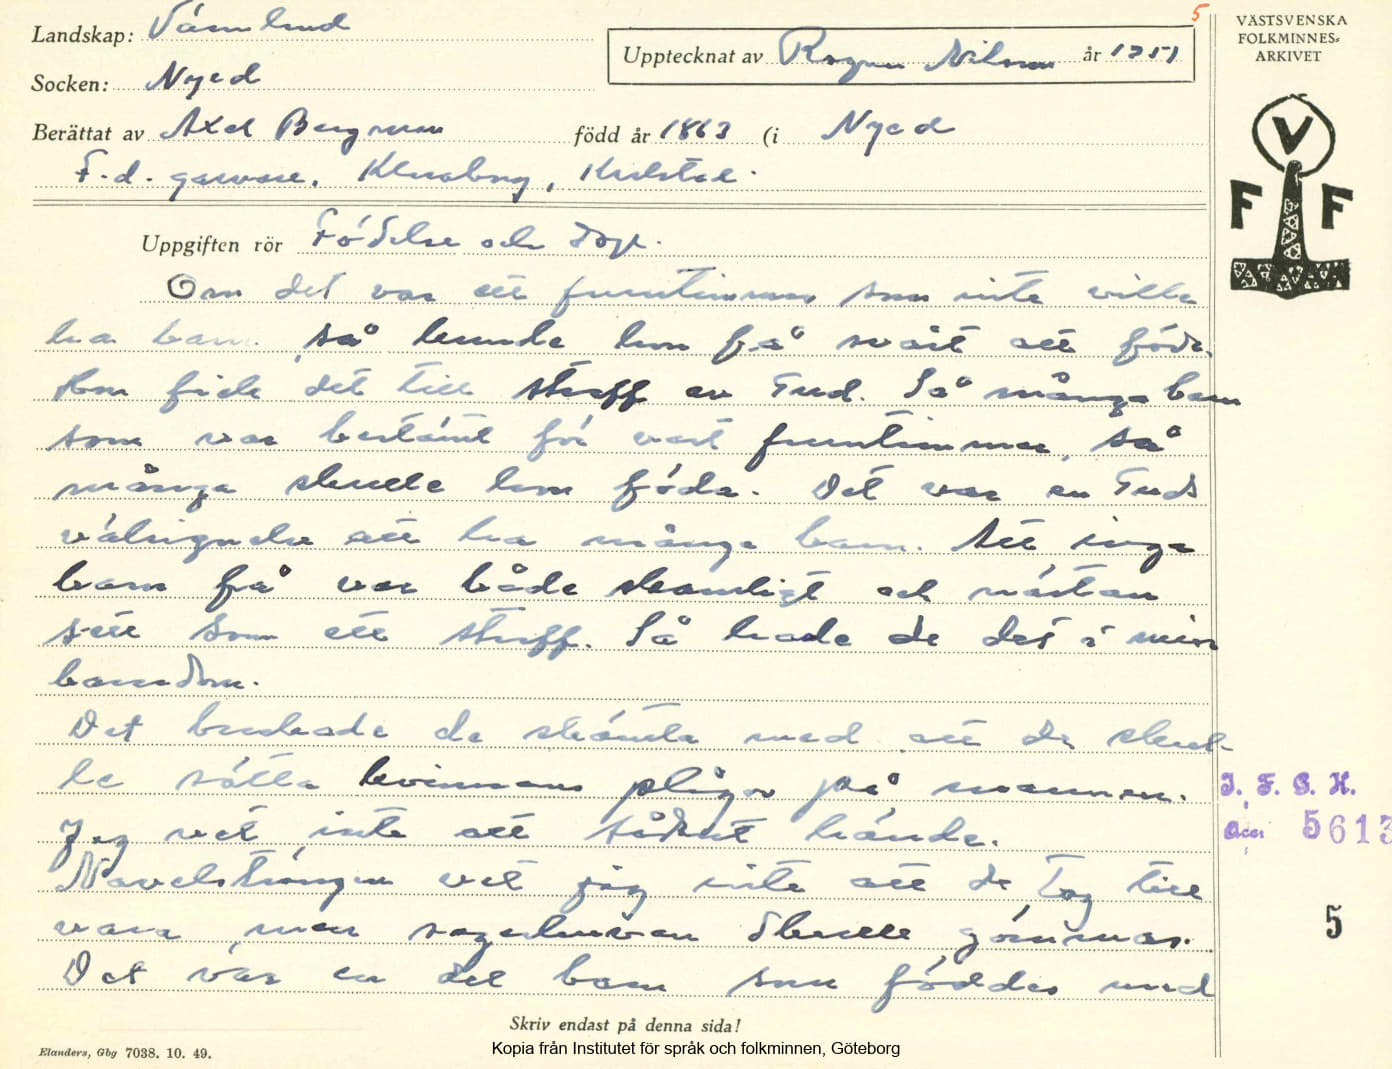 5
VÄSTSVENSKA
FOLKMINNES-
ARKIVET
Landskap: Värmland
Upptecknat av Ragnar Nilsson år 1951
Socken: Nyed
Berättat av Axel Bergman född år 1863 (i Nyed
F.d. garvare, Karlstad.
V
F F
Uppgiften rör Födelse och dop.
Om det var ett fruntimmer som inte ville
ha barn så kunde hon få svårt att föda.
Hon fick det till straff av Gud. Så många barn
som var bestämt för vart fruntimmer, så
många skulle hon föda. Det var en Guds
välsignelse att ha många barn. Att inga
barn få var både skamligt och nästan
sett som ett straff. Så hade de det i min
barndom.
Det brukade de skämta med att de skul-
le sätta kvinnans plågor på mannen.
Jag vet inte att sådant hände.
Navelsträngen vet jag inte att de tog till
vara, men segerhuvan skulle gömmas.
Det var en del barn som föddes med
I. F. G. H.
Acc. 5613
5
Skriv endast på denna sida!
Elanders, Gbg 7038. 10. 49.
Kopia från Institutet för språk och folkminnen, Göteborg